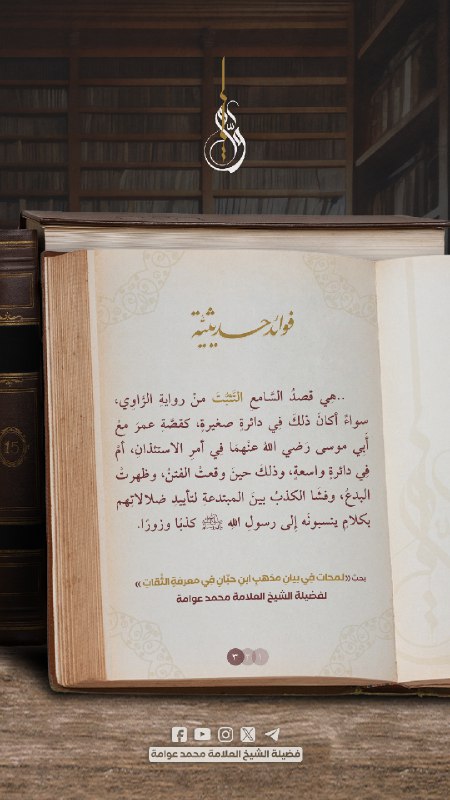 فوائد حديثية
..هي قصدُ السَّامعِ التَّثبُّتَ منْ روايةِ الرَّاوي،
سواءً أكانَ ذلكَ في دائرةٍ صغيرةٍ، كقصَّة عمرَ معَ
أبي موسى رضي اللهُ عنْهمَا في أمرِ الاستئذانِ، أمْ
في دائرةٍ واسعةٍ، وذلكَ حينَ وقعتْ الفتنُ، وظهرتْ
البدعُ، وفشَا الكذبُ بينَ المبتدعةِ لتأييدِ ضلالاتِهم
بكلامٍ ينسبونَه إلى رسول الله ﷺ كذبًا وزورًا.
بحث ((لمحات في بيان مذهب ابن حبّان في معرفة الثّقات))
لفضيلة الشيخ العلامة محمد عوامة
١ ٢ ٣
15
فضيلة الشيخ العلامة محمد عوامة